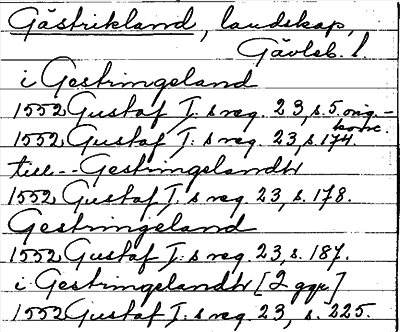 Gästrikland, landskap,
Gävleb. l.
i Gestringeland
1552 Gustaf I:s reg. 23, s. 5. orig.-
konc.
1552 Gustaf I:s reg. 23, s. 174.
till -- Gestringelandh
1552 Gustaf I:s reg. 23, s. 178.
Gestringeland
1552 Gustaf I:s reg. 23, s. 187.
i Gestringelandh [2 ggr]
1552 Gustaf I:s reg. 23, s. 225.